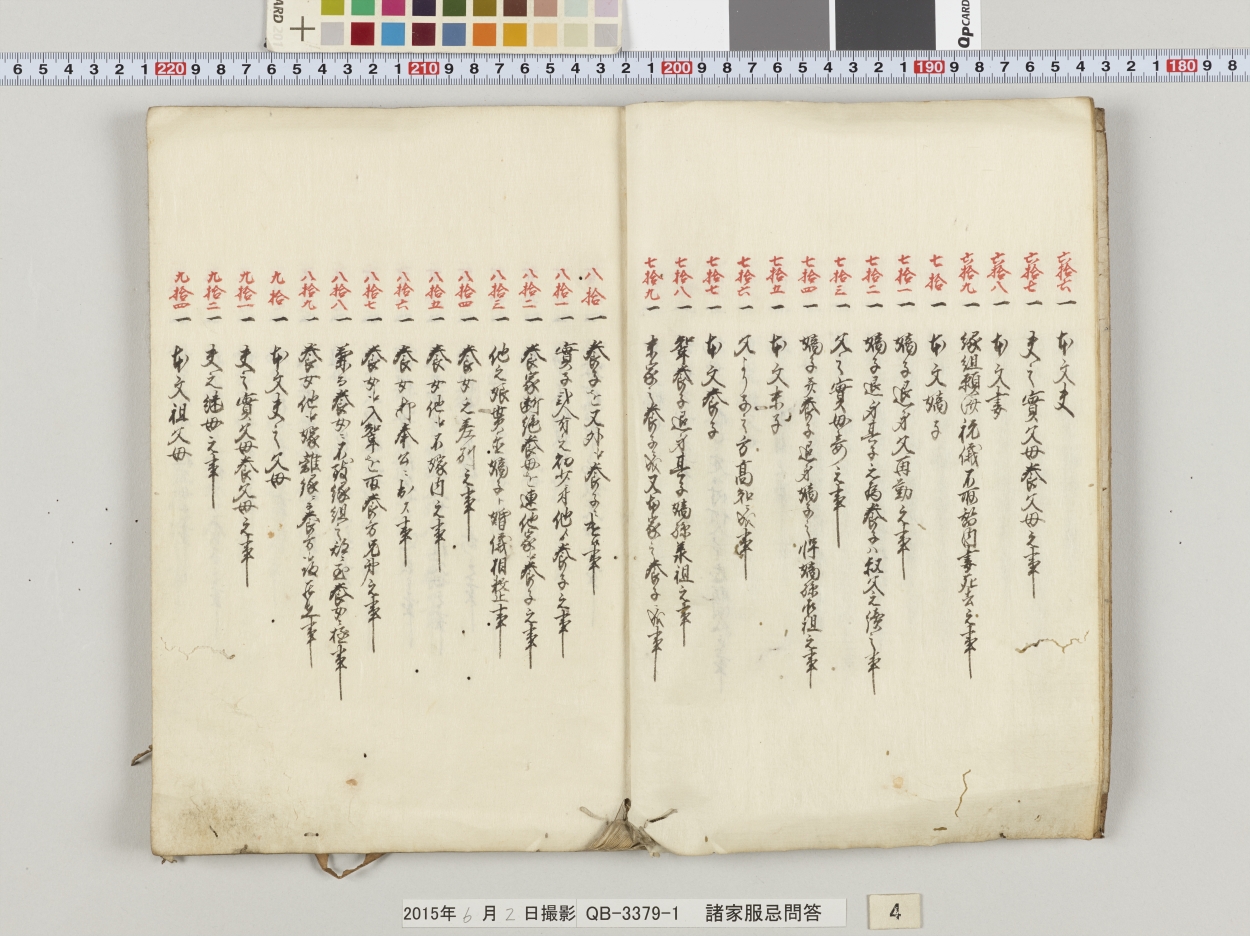 六拾六 一 本文夫
六拾七 一 夫之實父母養父母之事
六拾八 一 本文妻
六拾九 一 縁組願済祝儀不相整内妻死去之事
七拾 一 本文嫡子
七拾一 一 嫡子退身父再勤之事
七拾二 一 嫡子退身其子之為養子ハ叔父之続之事
七拾三 一 父之實母妾之事
七拾四 一 嫡子并養子退身嫡子之惣嫡孫承祖之事
七拾五 一 本文末子
七拾六 一 父より子之方高知成事
七拾七 一 本文養子
七拾八 一 聟養子退身其子嫡孫承祖之事
七拾九 一 末家之養子成又本家之養子成事
八拾 一 養子を又外江養子遣事
八拾一 一 實子弐人有之初少身他江養子之事
八拾二 一 養家断絶養母を連他家江養子之事
八拾三 一 他之娘貰置嫡子と婚儀相整事
八拾四 一 養女之差別之事
八拾五 一 養女他江不嫁内之事
八拾六 一 養女所奉公ニ出ス事
八拾七 一 養女江入聟を取養方兄弟之事
八拾八 一 養女
八拾九 一 養女他江嫁離縁ニ而養方
九拾 一 本文夫之父母
九拾一 一 夫之實父母養父母之事
九拾二 一 夫之継母之事
九拾四 一 本文祖父母
2015年6月2日撮影 QB-3379-1 諸家服忌問答
4
6 5 4 3 2 1 220 9 8 7 6 5 4 3 2 1 210 9 8 7 6 5 4 3 2 1 200 9 8 7 6 5 4 3 2 1 190 9 8 7 6 5 4 3 2 1 180 9 8
QPCARD